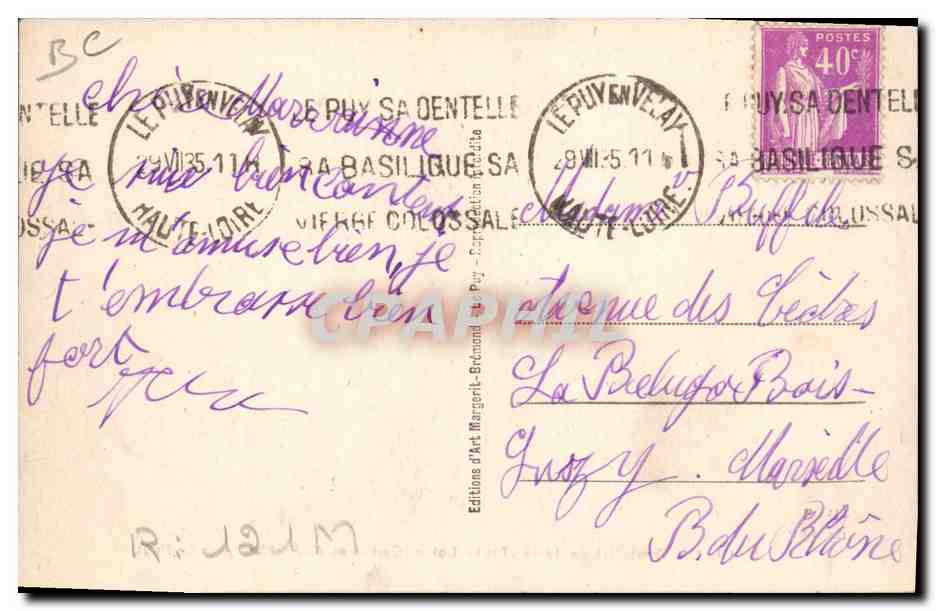 BC
Chère Marraine
je suis bien contente
je m'amuse bien, je
t'embrasse bien
fort
LE PUY EN VELAY
29 VII 35. 11 H
HAUTE-LOIRE
NTELLE
LE PUY. SA DENTELLE
SA BASILIQUE SA
VIERGE COLOSSALE
OSSAL
LE PUY EN VELAY
HAUTE-LOIRE
PUY. SA DENTELLE
SA BASILIQUE S
OSSAL
POSTES
40c
Madame Buffin
Avenue des Cèdres
La Bedugo Bois-
Luzy. Marseille
B. du Rhône
Editions d'Art Margerit-Brémond - Le Puy - Reproduction interdite
CPAPHIL
R: 121M